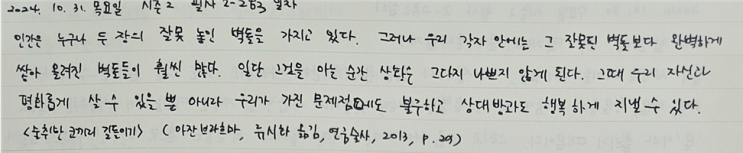 2024. 10. 31. 목요일 시즌 2 필사 2-2
인간은 누구나 두 장의 잘못 놓인 벽돌을 가지고 있다. 그러나 우리 각자 안에는 그 잘못된 벽돌보다 완벽하게
쌓아 올려진 벽돌들이 훨씬 많다. 일단 그것을 아는 순간 상황은 그다지 나쁘지 않게 된다. 그때 우리 자신과
평화롭게 살 수 있을 뿐 아니라 우리가 가진 문제점에도 불구하고 상대방과도 행복하게 지낼 수 있다.
<술취한 코끼리 길들이기> (아잔브라흐마, 류시화 옮김, 연금술사, 2013, p.29)